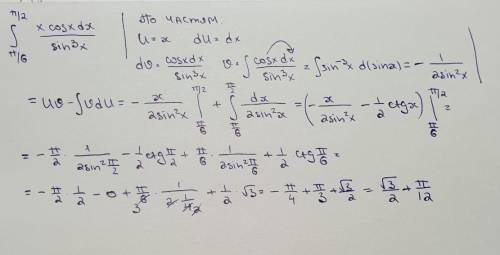 ∫_{π/6}^{π/2} x cosx dx / sin³x | по частям:
u = x   du = dx
dv = cosxdx / sin³x   v = ∫ cosx dx / sin³x = ∫ sin⁻³x d(sinx) = − 1 / 2sin²x
= uv − ∫vdu = − x / 2sin²x |_{π/6}^{π/2} + ∫_{π/6}^{π/2} dx / 2sin²x = (− x / 2sin²x − 1/2 ctgx) |_{π/6}^{π/2} =
= − π/2 · 1 / 2sin² π/2 − 1/2 ctg π/2 + π/6 · 1 / 2sin² π/6 + 1/2 ctg π/6 =
= − π/2 · 1/2 − 0 + π/6 3 · 1 / 2 · 1/4 2 + 1/2 √3 = − π/4 + π/3 + √3/2 = √3/2 + π/12